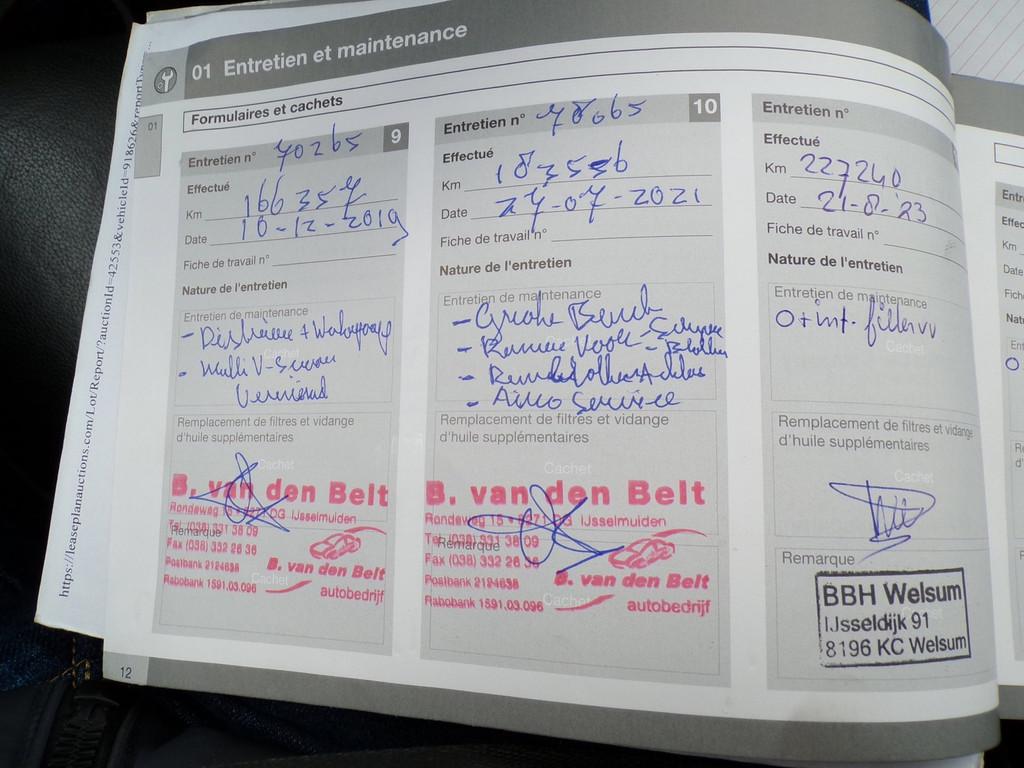 https://leaseplanauctions.com/Lot/Report/?auctionId=42553&vehicleId=918626&report
01 Entretien et maintenance
01
Formulaires et cachets
Entretien n° 70265 9
Effectué
Km 166357
Date 10-12-2019
Fiche de travail n°
Nature de l'entretien
Entretien de maintenance
- Multi V-Snaren
Vernieuwd
Remplacement de filtres et vidange
d'huile supplémentaires
Cachet
B. van den Belt
Rondeweg 15 • 8271 DG IJsselmuiden
Tel. (038) 331 38 09
Remarque
Fax (038) 332 26 36
Postbank 2124638
B. van den Belt
Cachet
Rabobank 1591.03.096
autobedrijf
12
Entretien n° 78665 10
Effectué
Km 183536
Date 27-07-2021
Fiche de travail n°
Nature de l'entretien
Entretien de maintenance
- Grote Beurt
- Remmen Voor
- Airco Service
Remplacement de filtres et vidange
d'huile supplémentaires
Cachet
B. van den Belt
Rondeweg 15 • 8271 DG IJsselmuiden
Tel. (038) 331 38 09
Remarque
Fax (038) 332 26 36
Postbank 2124638
B. van den Belt
Cachet
Rabobank 1591.03.096
autobedrijf
Entretien n°
Effectué
Km 227240
Date 21-8-23
Fiche de travail n°
Nature de l'entretien
Entretien de maintenance
O + int. filter vv
Cachet
Remplacement de filtres et vidange
d'huile supplémentaires
Cachet
Remarque
BBH Welsum
IJsseldijk 91
8196 KC Welsum
Km
Date